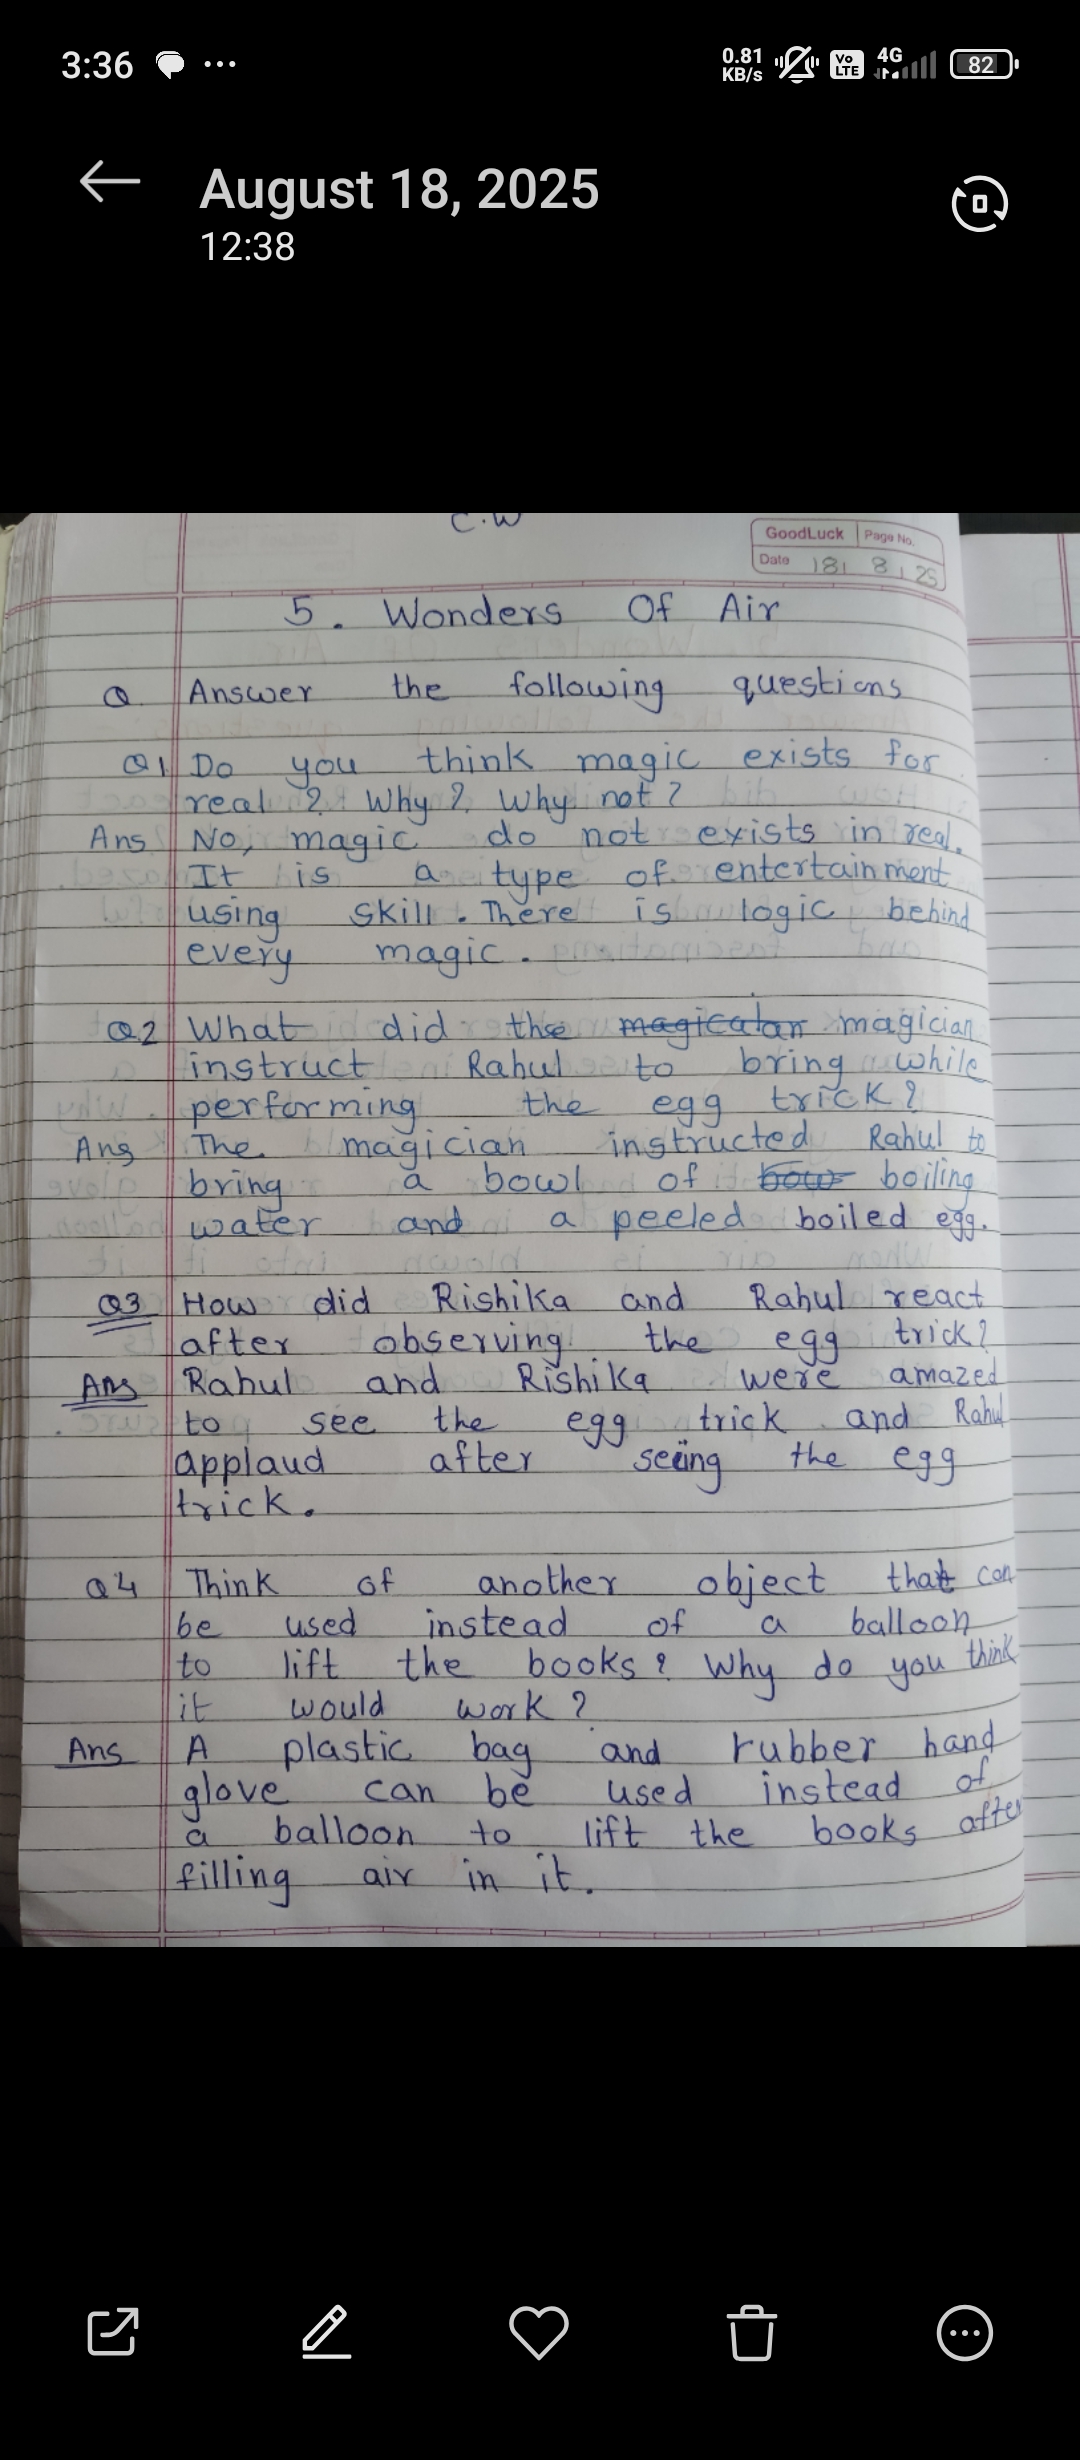 3:36
0.81 KB/s
Vo LTE
4G
82
August 18, 2025
12:38
C.W
GoodLuck Page No.
Date 18 / 8 / 25
5. Wonders Of Air
Q Answer the following questions
Q1 Do you think magic exists for
real ? Why ? Why not ?
Ans No, magic do not exists in real.
It is a type of entertainment
using skill. There is logic behind
every magic.
Q2 What did the magician
instruct Rahul to bring while
performing the egg trick ?
Ans The magician instructed Rahul to
bring a bowl of boiling
water and a peeled boiled egg.
Q3 How did Rishika and Rahul react
after observing the egg trick ?
Ans Rahul and Rishika were amazed
to see the egg trick and Rahul
applaud after seeing the egg
trick.
Q4 Think of another object that can
be used instead of a balloon
to lift the books ? Why do you think
it would work ?
Ans A plastic bag and rubber hand
glove can be used instead of
a balloon to lift the books after
filling air in it.